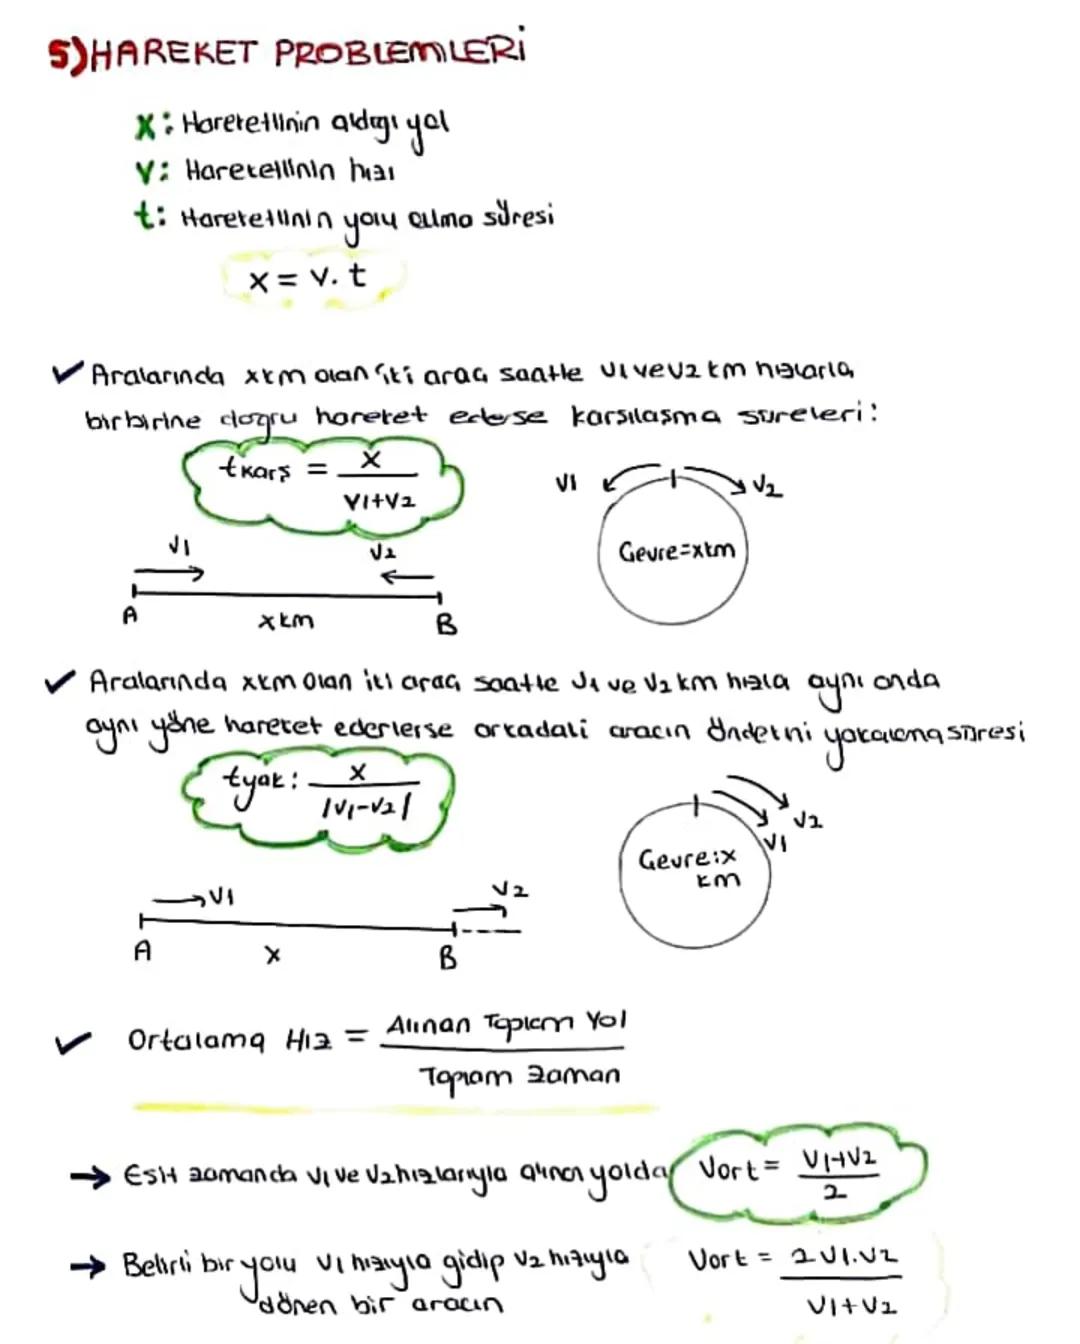 5)HAREKET PROBLEMLERİ
X: Hareketlinin aldığı yol
V: Hareketlinin hızı
t: Hareketlinin yolu alma süresi
x = v. t
✓ Aralarında xkm olan iki araç saatte v1 ve v2 km hızlarla,
birbirine doğru hareket ederse karşılaşma süreleri:
tkarş = x / v1+v2
V1 V2
Çevre=xkm
V1 V2
A xkm B
✓ Aralarında xkm olan iki araç saatte v1 ve v2 km hızla aynı anda
aynı yöne hareket ederlerse arkadaki aracın öndekini yakalama süresi
tyak: x / |v1-v2|
V2
V1
Çevre:x
km
V1 V2
A x B
✓ Ortalama Hız = Alınan Toplam Yol / Toplam Zaman
→ Eşit zamanda v1 ve v2 hızlarıyla alınan yolda Vort = V1+V2 / 2
→ Belirli bir yolu v1 hızıyla gidip v2 hızıyla Vort = 2V1.V2 / V1+V2
dönen bir aracın